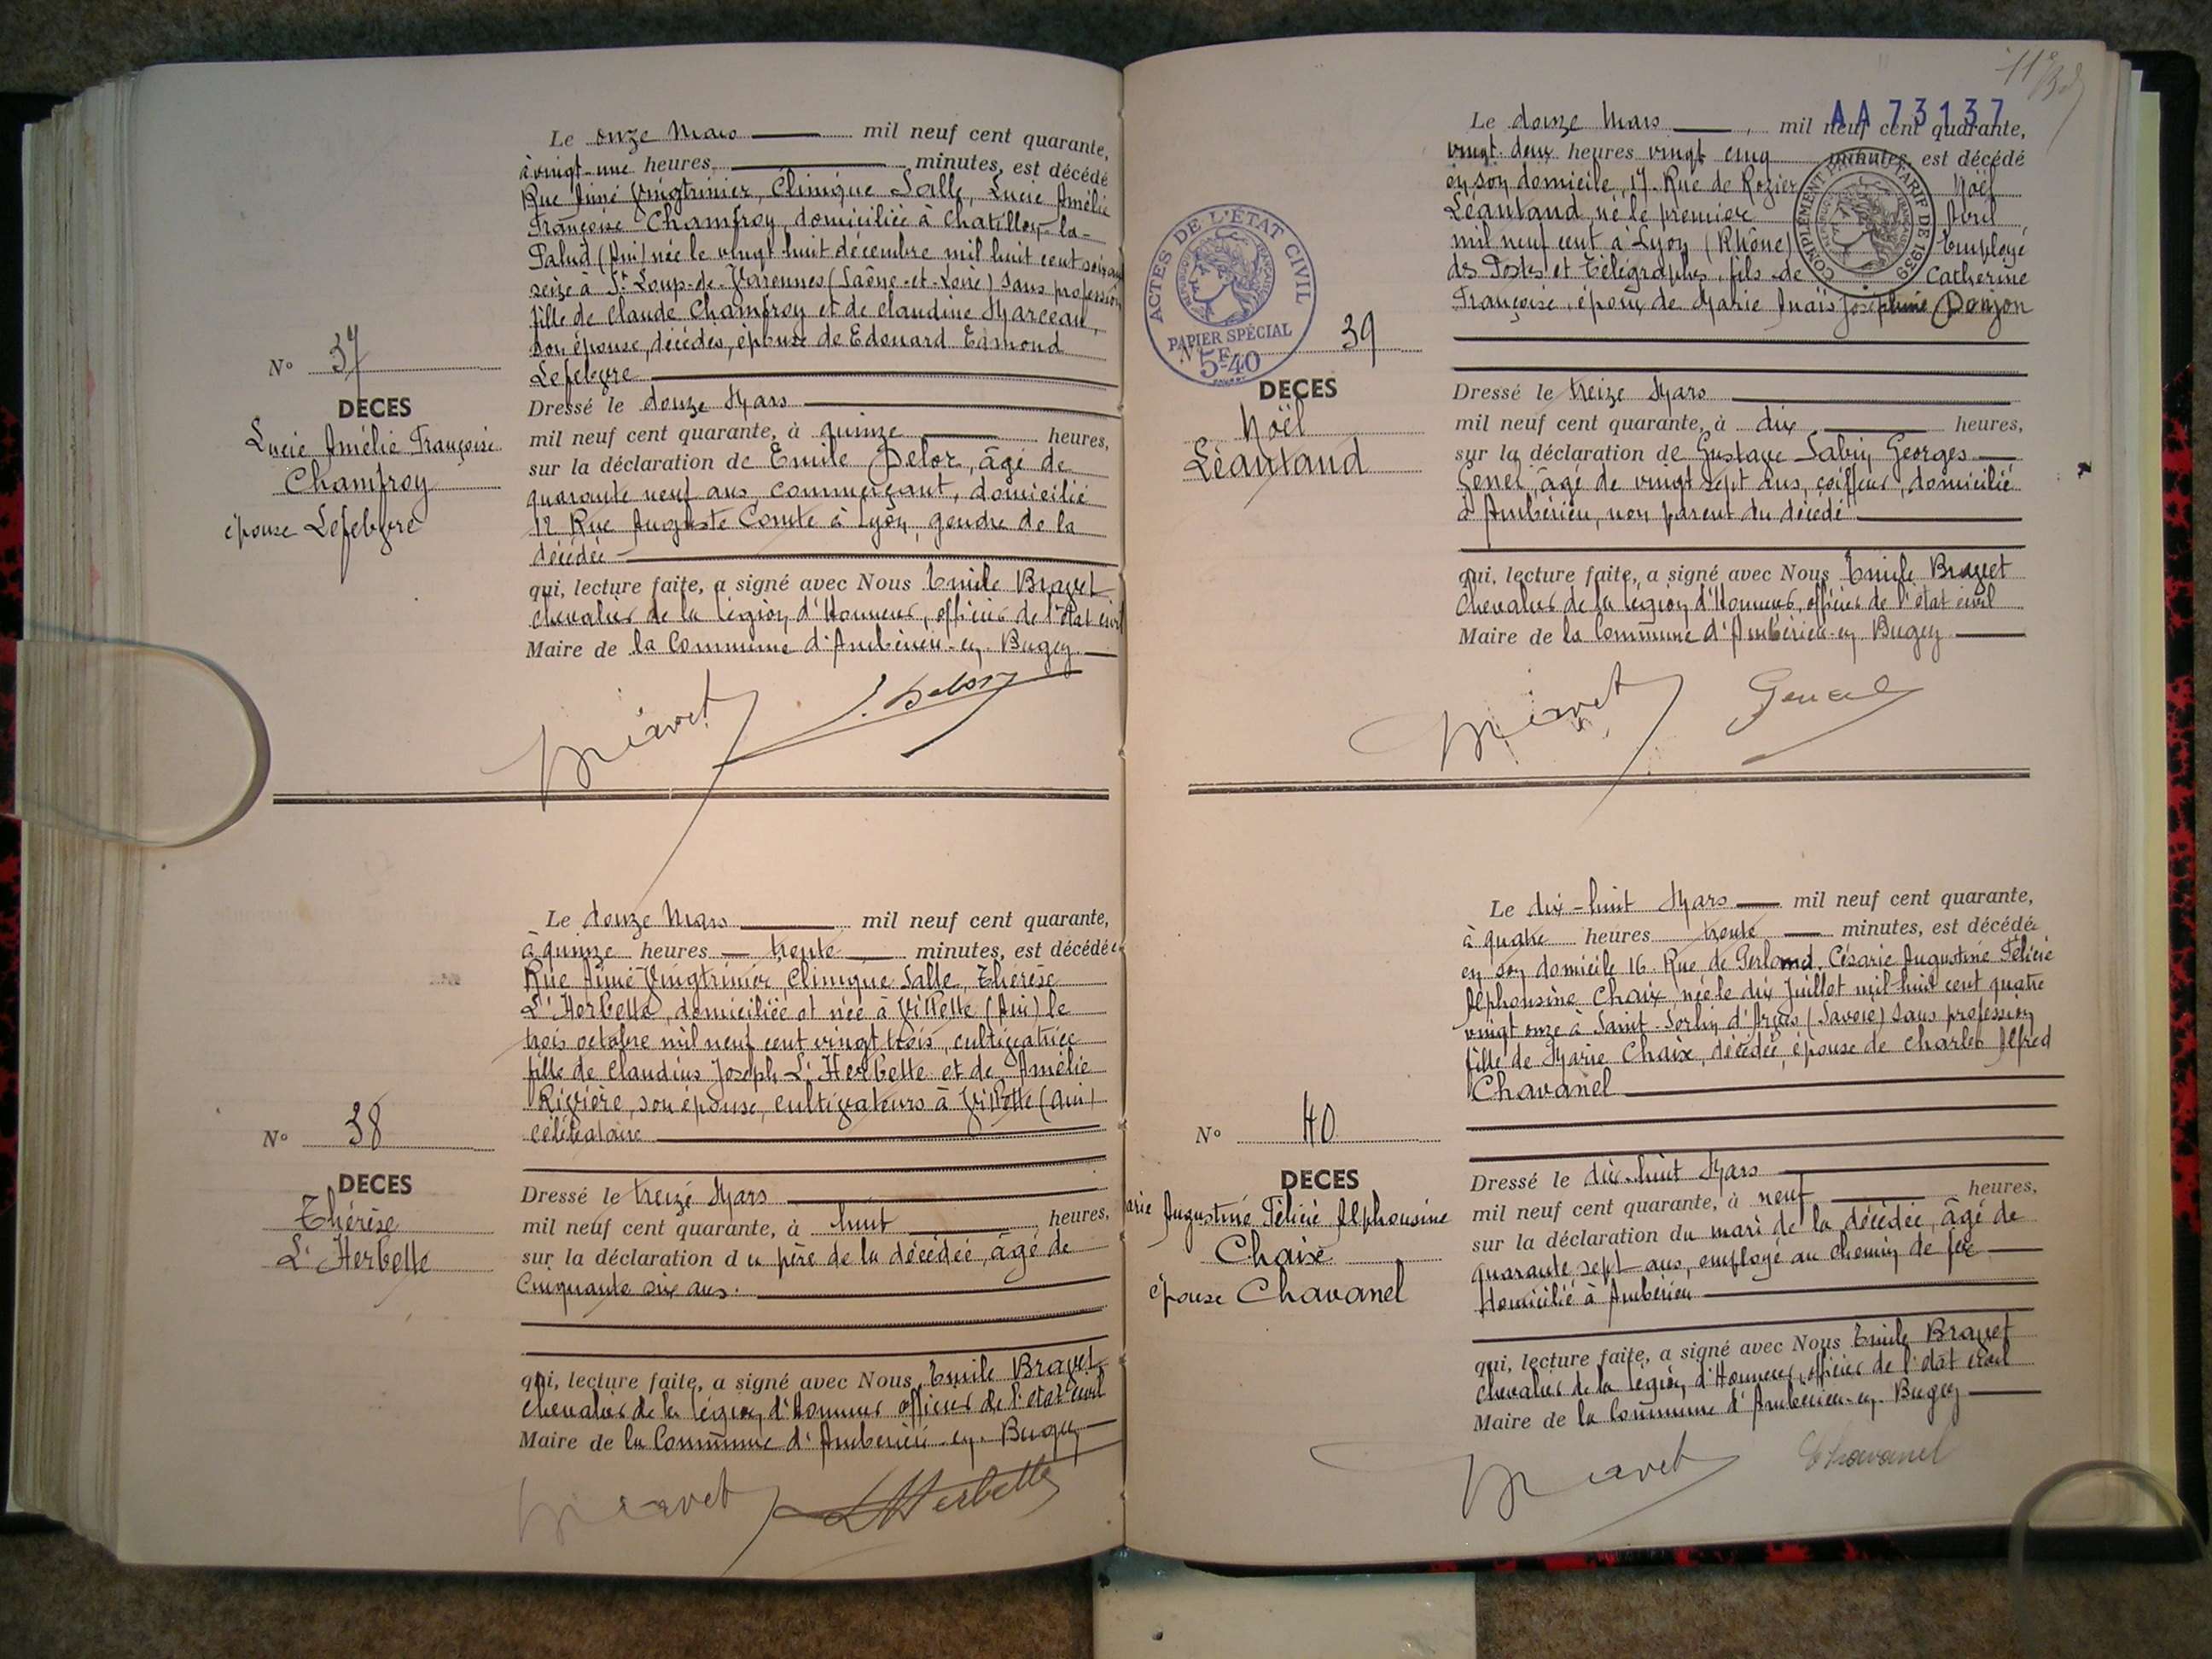 Le onze Mars mil neuf cent quarante,
à vingt-une heures minutes, est décédé
Rue Aimé Vingtrinier, Clinique Salle, Lucie Amélie
Françoise Chamfroy, domiciliée à Chatillon-la-
Palud (Ain) née le vingt huit décembre mil huit cent soixante
seize à St Loup-de-Varennes (Saône-et-Loire) sans profession
fille de Claude Chamfroy et de Claudine Marceau,
son épouse, décédés, épouse de Edouard Edmond
Lefebvre
N° 37
DECES
Lucie Amélie Françoise
Chamfroy
épouse Lefebvre
Dressé le douze Mars
mil neuf cent quarante, à quinze heures,
sur la déclaration de Emile Delor, âgé de
quarante neuf ans, commerçant, domicilié
12 Rue Auguste Comte à Lyon, gendre de la
décédée
qui, lecture faite, a signé avec Nous Emile Bravet
chevalier de la légion d'Honneur, officier de l'état civil
Maire de la Commune d'Ambérieu-en-Bugey.
Bravet
Le douze Mars mil neuf cent quarante,
à quinze heures trente minutes, est décédée
Rue Aimé Vingtrinier, Clinique Salle, Thérèse
L'Herbette, domiciliée et née à Villette (Ain) le
trois octobre mil neuf cent vingt trois, cultivatrice
fille de Claudius Joseph L'Herbette et de Amélie
Rivière, son épouse, cultivateurs à Villette (Ain)
célibataire
N° 38
DECES
Thérèse
L'Herbette
Dressé le treize Mars
mil neuf cent quarante, à huit heures,
sur la déclaration du père de la décédée, âgé de
Cinquante six ans.
qui, lecture faite, a signé avec Nous Emile Bravet
chevalier de la légion d'Honneur officier de l'état civil
Maire de la Commune d'Ambérieu-en-Bugey
Bravet L'Herbette
11e
AA 73137
Le douze Mars, mil neuf cent quarante,
vingt-deux heures vingt cinq minutes, est décédé
en son domicile, 17 Rue de Rozier Noël
Léautaud, né le premier Avril
mil neuf cent à Lyon (Rhône) Employé
des Postes et Télégraphes, fils de Catherine
Françoise, époux de Marie Anaïs Joséphine Donjon
COMPLÉMENT TARIF DE 1939
ACTES DE L'ÉTAT CIVIL
RÉPUBLIQUE FRANÇAISE
PAPIER SPÉCIAL
5F40
N° 39
DECES
Noël
Léautaud
Dressé le treize Mars
mil neuf cent quarante, à dix heures,
sur la déclaration de Gustave Sabin Georges
Genel, âgé de vingt sept ans, coiffeur, domicilié
à Ambérieu, non parent du décédé
qui, lecture faite, a signé avec Nous Emile Bravet
chevalier de la légion d'Honneur, officier de l'état civil
Maire de la Commune d'Ambérieu-en-Bugey
Bravet Genel
Le dix-huit Mars mil neuf cent quarante,
à quatre heures trente minutes, est décédée
en son domicile 16 Rue de Gerland, Césarie Augustine Félicie
Alphonsine Chaix, née le dix Juillet mil huit cent quatre
vingt onze à Saint-Sorlin d'Arves (Savoie) sans profession
fille de Marie Chaix, décédée, épouse de Charles Alfred
Chavanel
N° 40
DECES
arie Augustine Félicie Alphonsine
Chaix
épouse Chavanel
Dressé le dix-huit Mars
mil neuf cent quarante, à neuf heures,
sur la déclaration du mari de la décédée, âgé de
quarante sept ans, employé au chemin de fer
domicilié à Ambérieu
qui, lecture faite, a signé avec Nous Emile Bravet
chevalier de la légion d'Honneur, officier de l'état civil
Maire de la Commune d'Ambérieu-en-Bugey
Bravet Chavanel